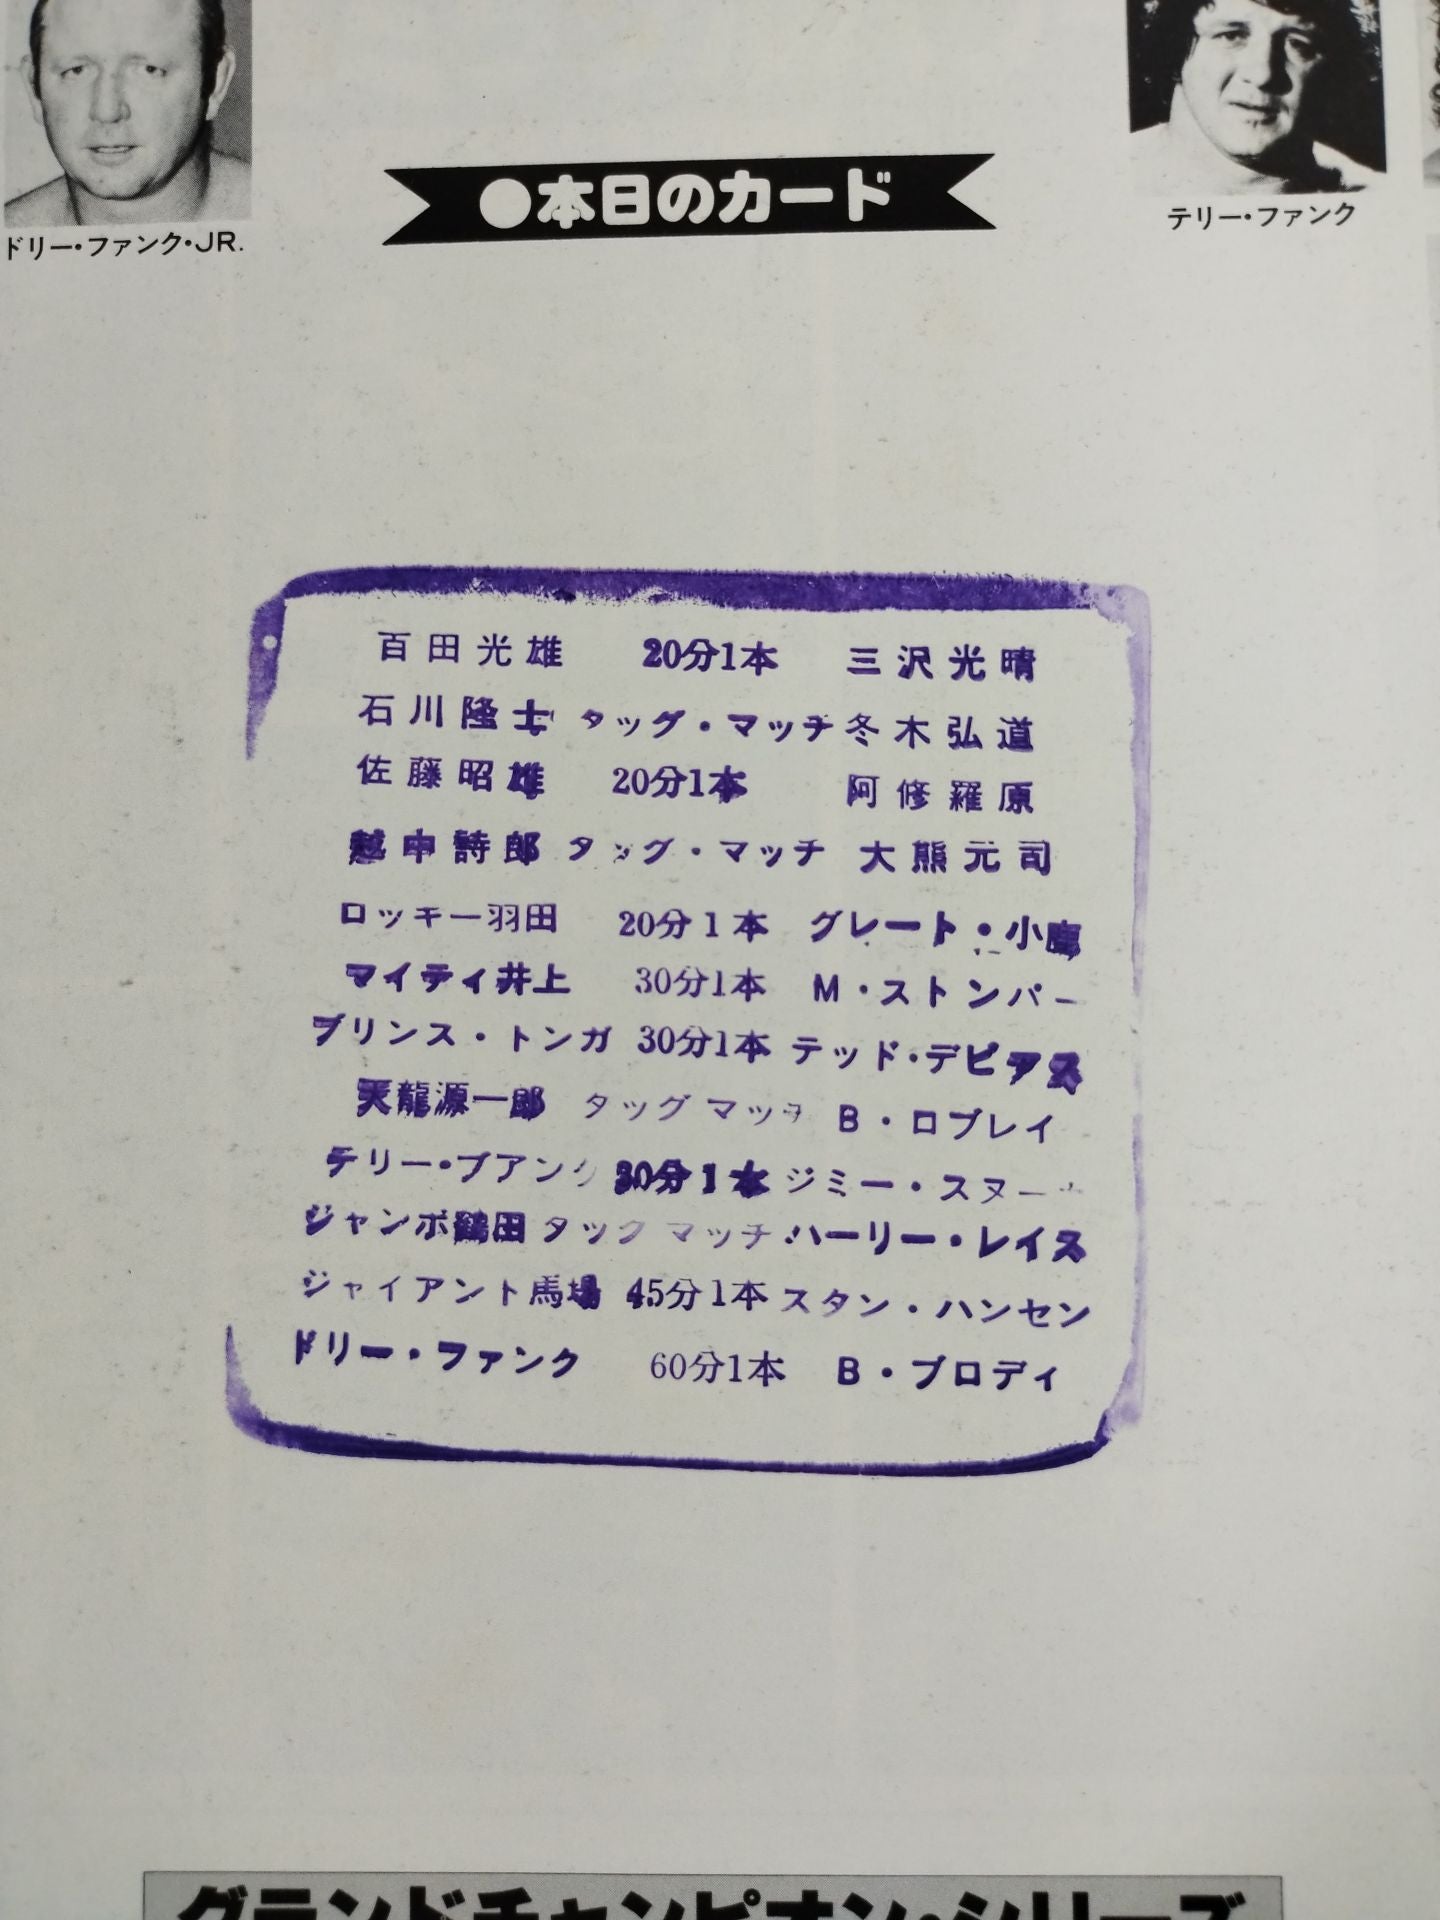 ドリー・ファンク・JR.
テリー・ファンク
●本日のカード
百田光雄 20分1本 三沢光晴
石川隆士 タッグ・マッチ 冬木弘道
佐藤昭雄 20分1本 阿修羅原
越中詩郎 タッグ・マッチ 大熊元司
ロッキー羽田 20分1本 グレート・小鹿
マイティ井上 30分1本 M・ストンパー
プリンス・トンガ 30分1本 テッド・デビアス
天龍源一郎 タッグ マッチ B・ロブレイ
テリー・ファンク 30分1本 ジミー・スヌーカ
ジャンボ鶴田 タッグ マッチ ハーリー・レイス
ジャイアント馬場 45分1本 スタン・ハンセン
ドリー・ファンク 60分1本 B・ブロディ
グランドチャンピオン・シリーズ